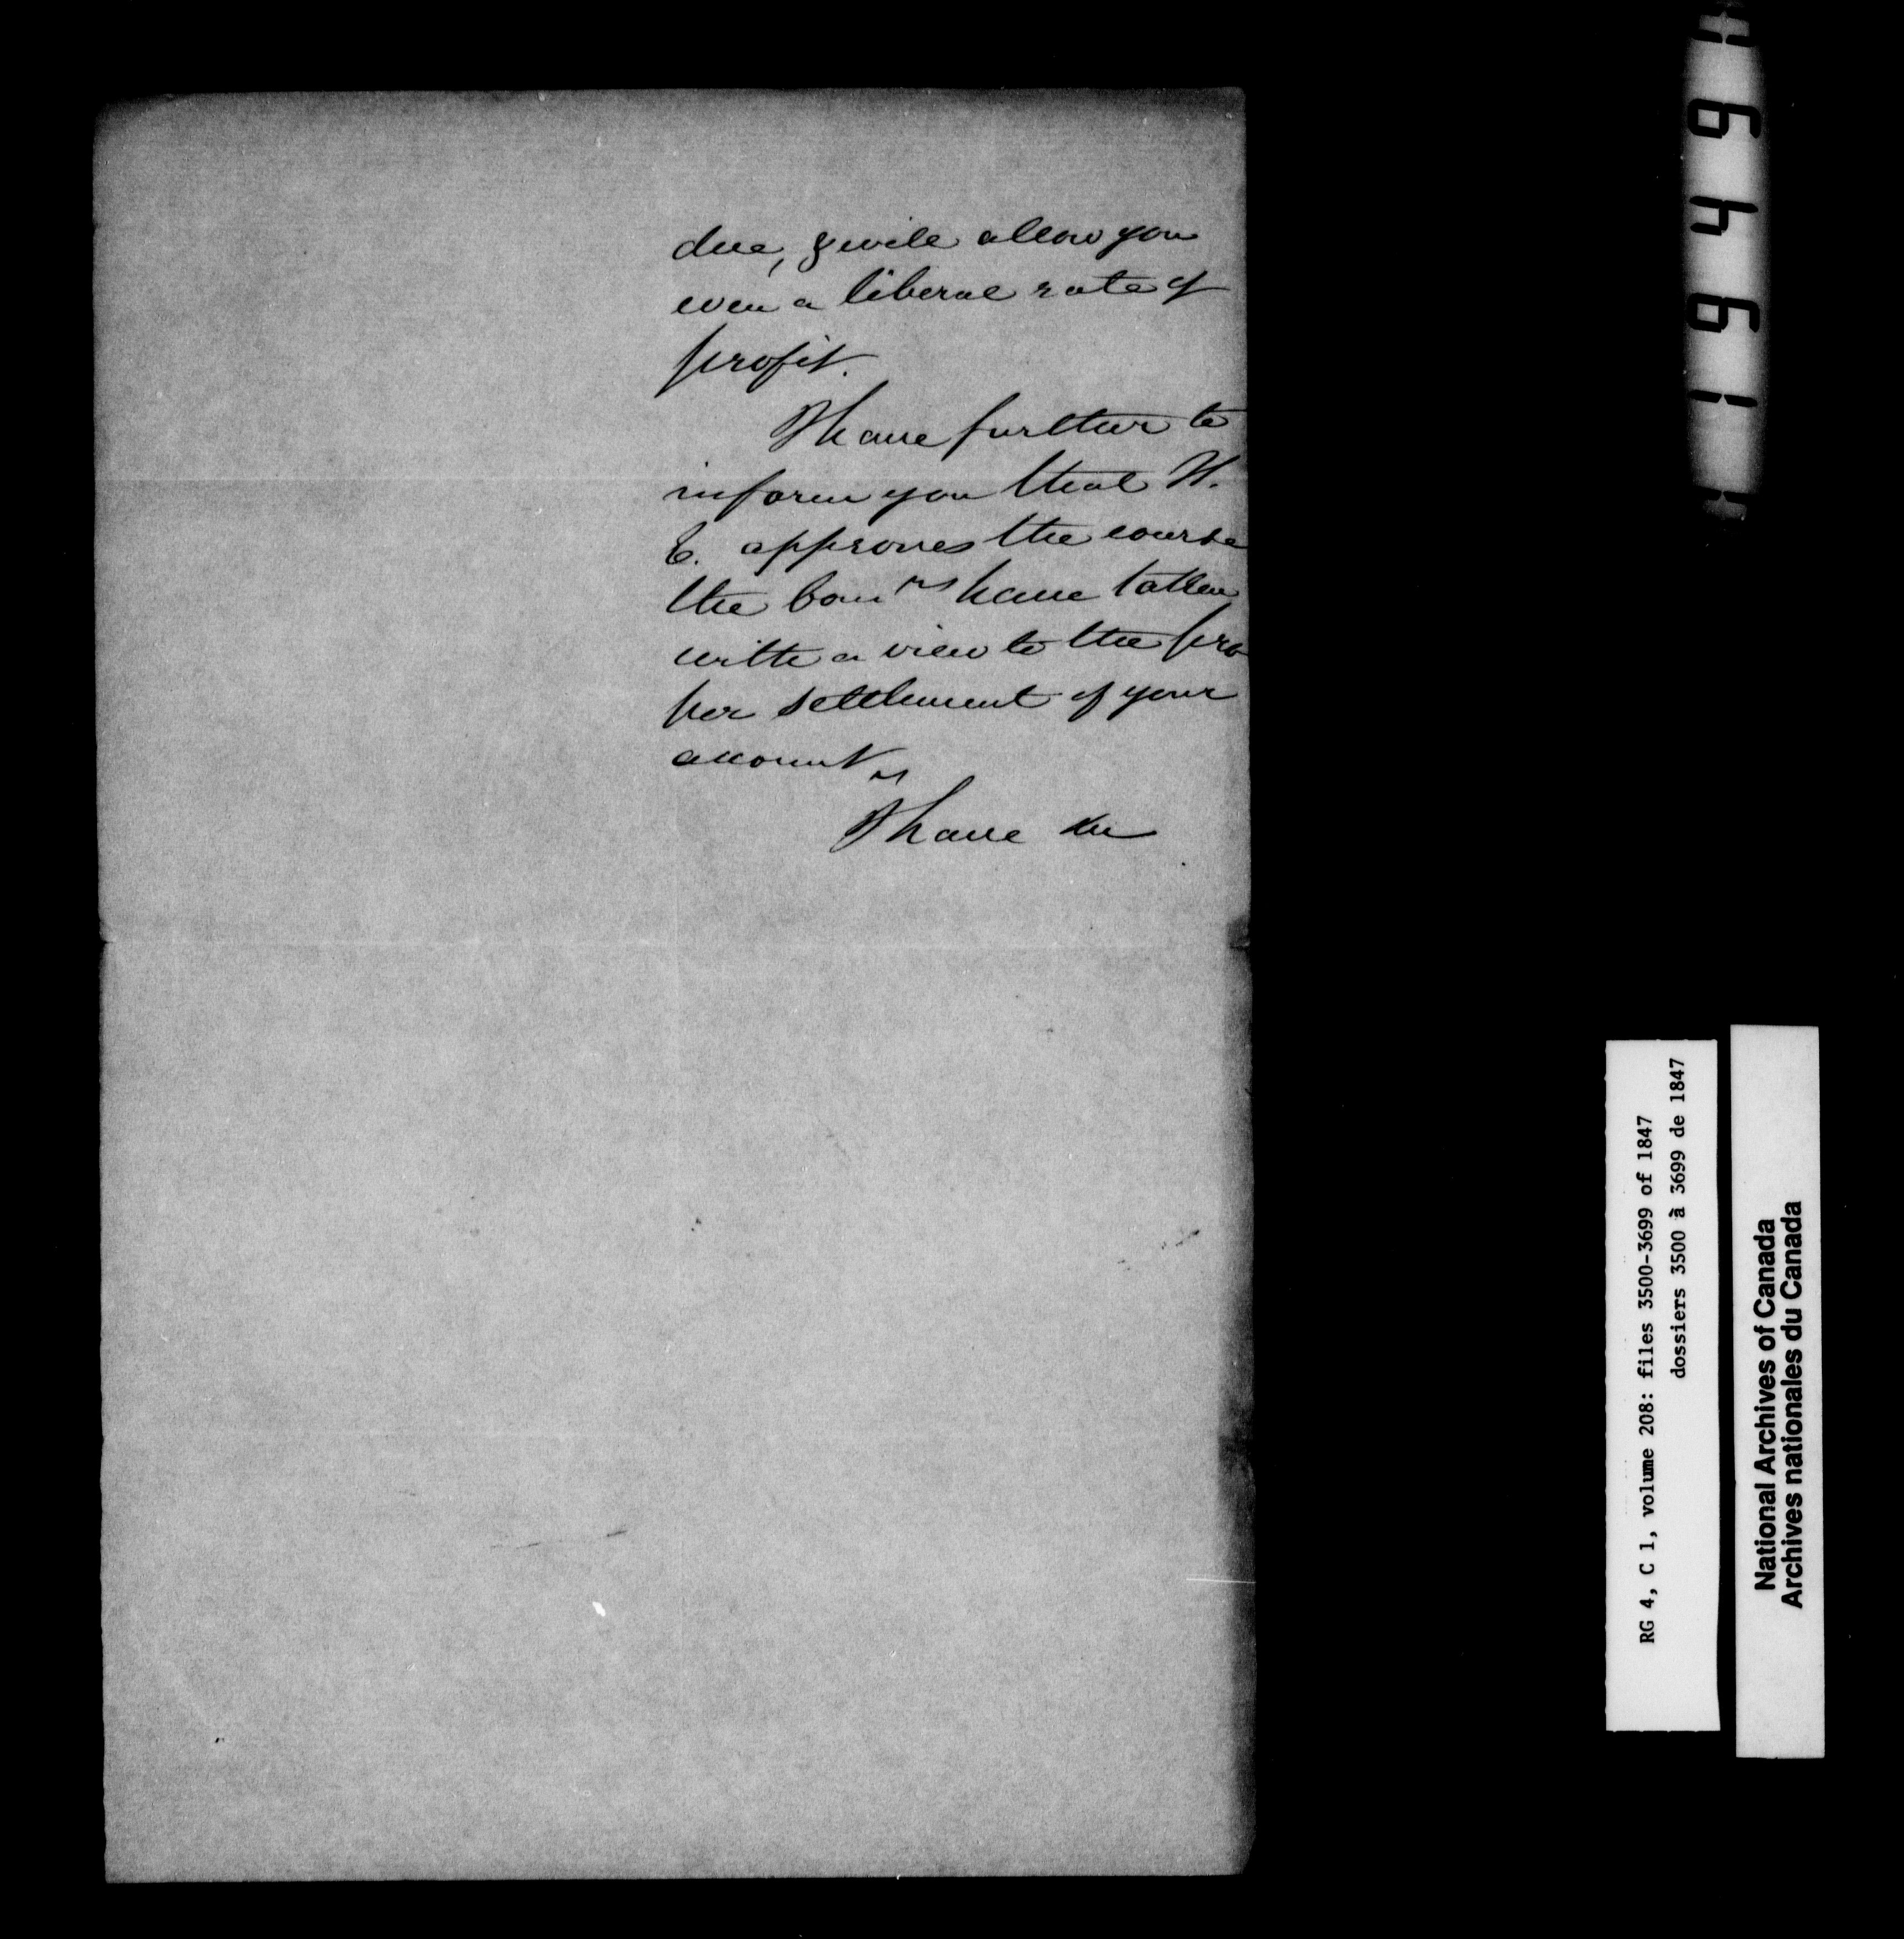 due, & will allow you
even a liberal rate of
profit.
I have further to
inform you that H.
E. approves the course
the Com.rs have taken
with a view to the pro
per settlement of your
account
I have &c
H 19449 H
RG 4, C 1, volume 208: files 3500-3699 of 1847
dossiers 3500 à 3699 de 1847
National Archives of Canada
Archives nationales du Canada